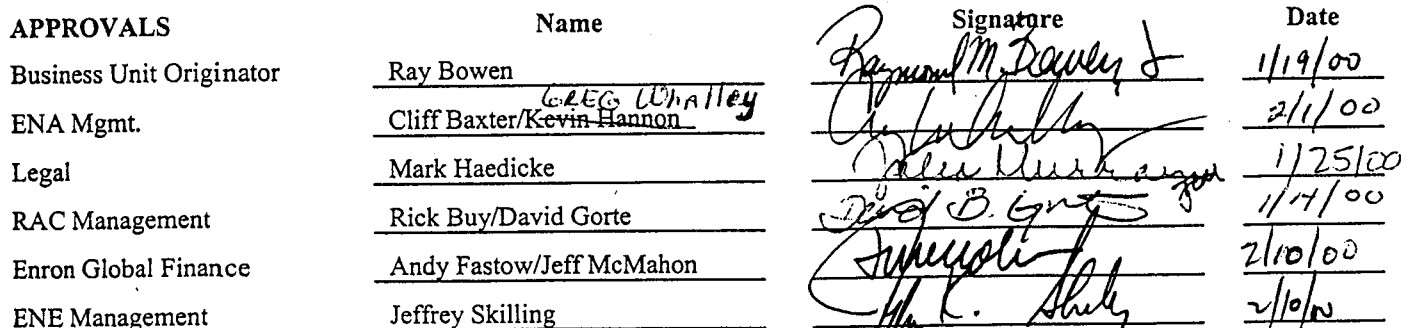 APPROVALS Name Signature Date
Business Unit Originator Ray Bowen Raymond M. Bowen Jr 1/19/00
GREG Whalley
ENA Mgmt. Cliff Baxter/Kevin Hannon 2/1/00
Legal Mark Haedicke 1/25/00
RAC Management Rick Buy/David Gorte David B. Gorte 1/14/00
Enron Global Finance Andy Fastow/Jeff McMahon 2/10/00
ENE Management Jeffrey Skilling 2/10/00